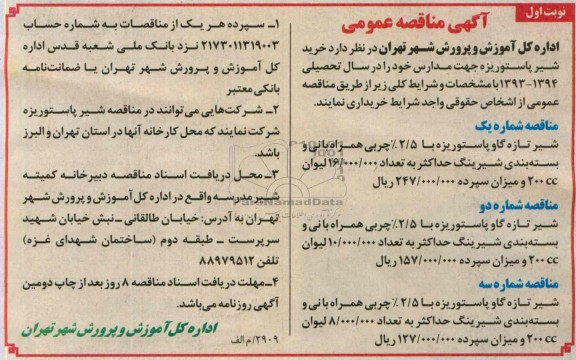 نوبت اول
آگهی مناقصه عمومی
اداره کل آموزش و پرورش شهر تهران در نظر دارد خرید
شیر پاستوریزه جهت مدارس خود را در سال تحصیلی
۱۳۹۴-۱۳۹۳ با مشخصات و شرایط کلی زیر از طریق مناقصه
عمومی از اشخاص حقوقی واجد شرایط خریداری نمایند.
مناقصه شماره یک
شیر تازه گاو پاستوریزه با ۲/۵٪ چربی همراه بانی و
بسته‌بندی شیرینگ حداکثر به تعداد ۱۶/۰۰۰/۰۰۰ لیوان
۲۰۰ cc و میزان سپرده ۲۴۷/۰۰۰/۰۰۰ ریال
مناقصه شماره دو
شیر تازه گاو پاستوریزه با ۲/۵٪ چربی همراه بانی و
بسته‌بندی شیرینگ حداکثر به تعداد ۱۰/۰۰۰/۰۰۰ لیوان
۲۰۰ cc و میزان سپرده ۱۵۷/۰۰۰/۰۰۰ ریال
مناقصه شماره سه
شیر تازه گاو پاستوریزه با ۲/۵٪ چربی همراه بانی و
بسته‌بندی شیرینگ حداکثر به تعداد ۸/۰۰۰/۰۰۰ لیوان
۲۰۰ cc و میزان سپرده ۱۲۷/۰۰۰/۰۰۰ ریال
۱- سپرده هر یک از مناقصات به شماره حساب
۲۱۷۳۰۱۱۳۱۹۰۰۳ نزد بانک ملی شعبه قدس اداره
کل آموزش و پرورش شهر تهران یا ضمانت‌نامه
بانکی معتبر
۲- شرکت‌هایی می‌توانند در مناقصه شیر پاستوریزه
شرکت نمایند که محل کارخانه آنها در استان تهران و البرز
باشد.
۳- محل دریافت اسناد مناقصه دبیرخانه کمیته
شیر مدرسه واقع در اداره کل آموزش و پرورش شهر
تهران به آدرس: خیابان طالقانی - نبش خیابان شهید
سرپرست - طبقه دوم (ساختمان شهدای غزه)
تلفن ۸۸۹۷۹۵۱۲
۴- مهلت دریافت اسناد مناقصه ۸ روز بعد از چاپ دومین
آگهی روزنامه می‌باشد.
اداره کل آموزش و پرورش شهر تهران
۲۹۰۹/م الف
ParsNamadData